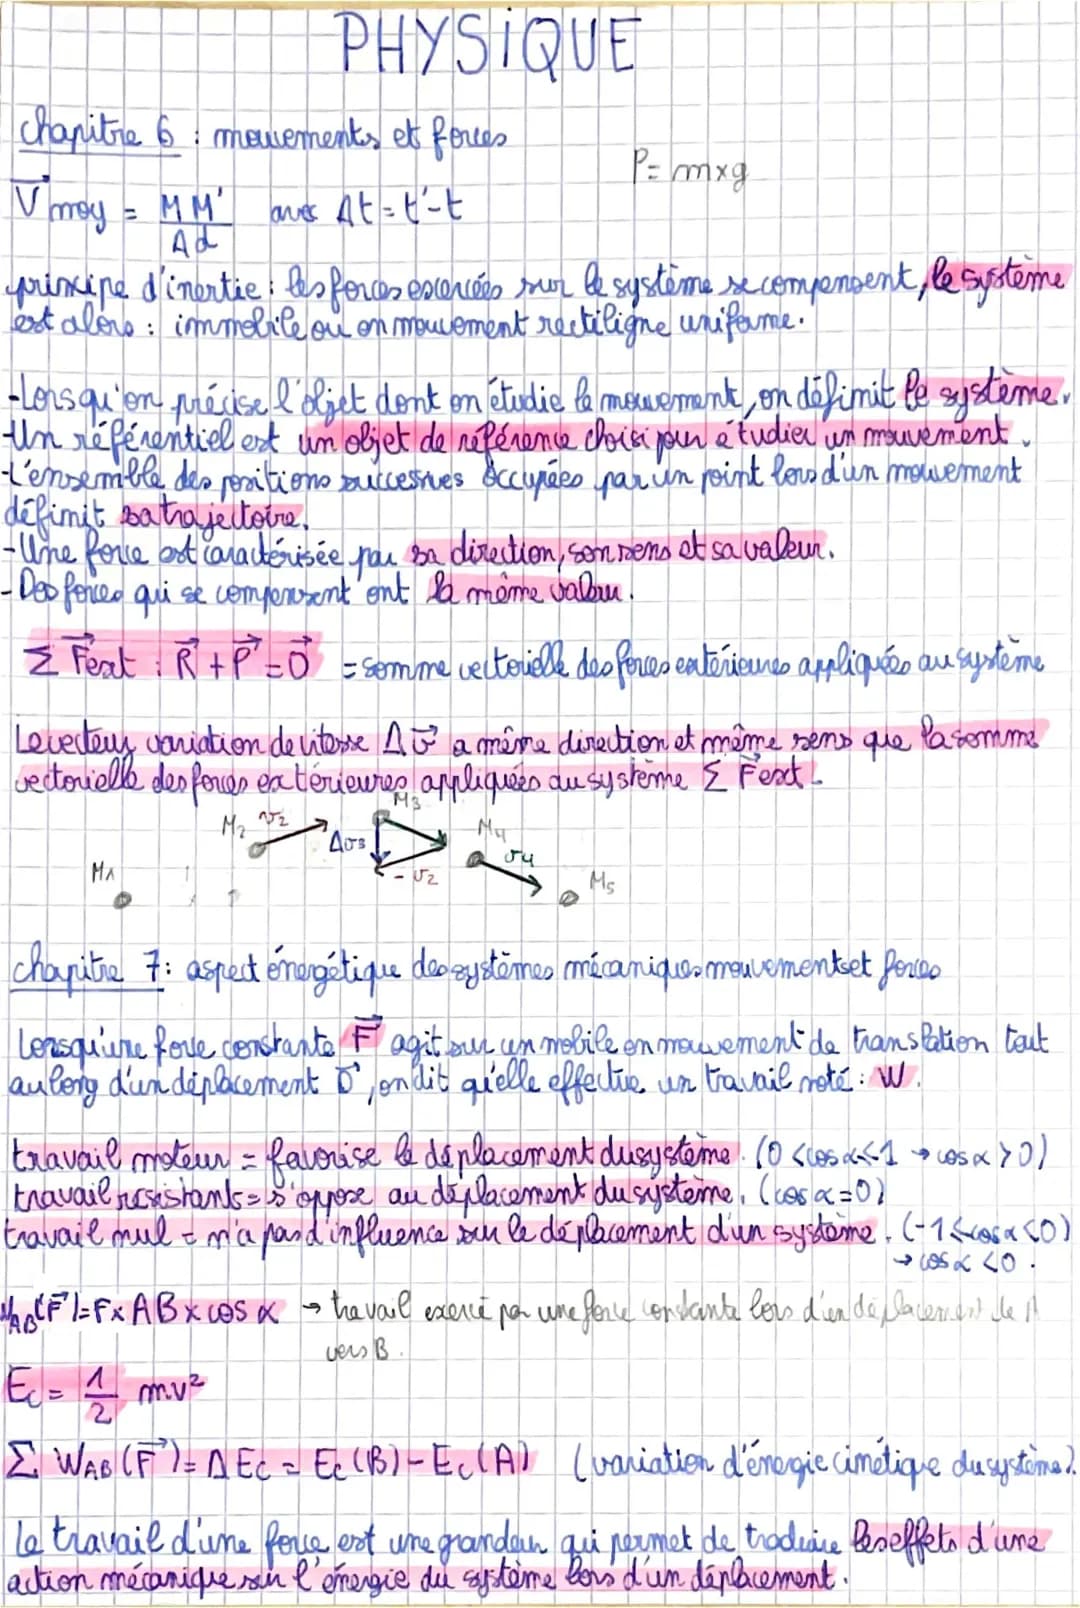 PHYSIQUE
chapitre 6 : mouvements et forces
P = m×g
V⃗moy = MM' / Δt avec Δt = t'-t
principe d'inertie : les forces exercées sur le système se compensent, le système
est alors : immobile ou en mouvement rectiligne uniforme.
-Lorsqu'on précise l'objet dont on étudie le mouvement, on définit le système.
-Un référentiel est un objet de référence choisi pour étudier un mouvement.
-L'ensemble des positions successives occupées par un point lors d'un mouvement
définit sa trajectoire.
-Une force est caractérisée par sa direction, son sens et sa valeur.
-Des forces qui se compensent ont la même valeur.
Σ F⃗ext : R⃗ + P⃗ = 0⃗ = somme vectorielle des forces extérieures appliquées au système
Le vecteur variation de vitesse Δv⃗ a même direction et même sens que la somme
vectorielle des forces extérieures appliquées au système Σ F⃗ext.
M1 M2 v2 Δv3 M3 -v2 M4 v4 M5
chapitre 7 : aspect énergétique des systèmes mécaniques mouvements et forces
Lorsqu'une force constante F⃗ agit sur un mobile en mouvement de translation tout
au long d'un déplacement D⃗, on dit qu'elle effectue un travail noté : W.
travail moteur = favorise le déplacement du système. (0 < cos α < 1 → cos α > 0)
travail résistants = s'oppose au déplacement du système. (cos α = 0)
travail nul = n'a pas d'influence sur le déplacement d'un système. (-1 ≤ cos α < 0)
→ cos α < 0.
WAB(F⃗) = F × AB × cos α → travail exercé par une force constante lors d'un déplacement de A
vers B.
Ec = 1/2 mv²
Σ WAB (F⃗) = ΔEc = Ec(B) - Ec(A) (variation d'énergie cinétique du système).
Le travail d'une force est une grandeur qui permet de traduire les effets d'une
action mécanique sur l'énergie du système lors d'un déplacement.